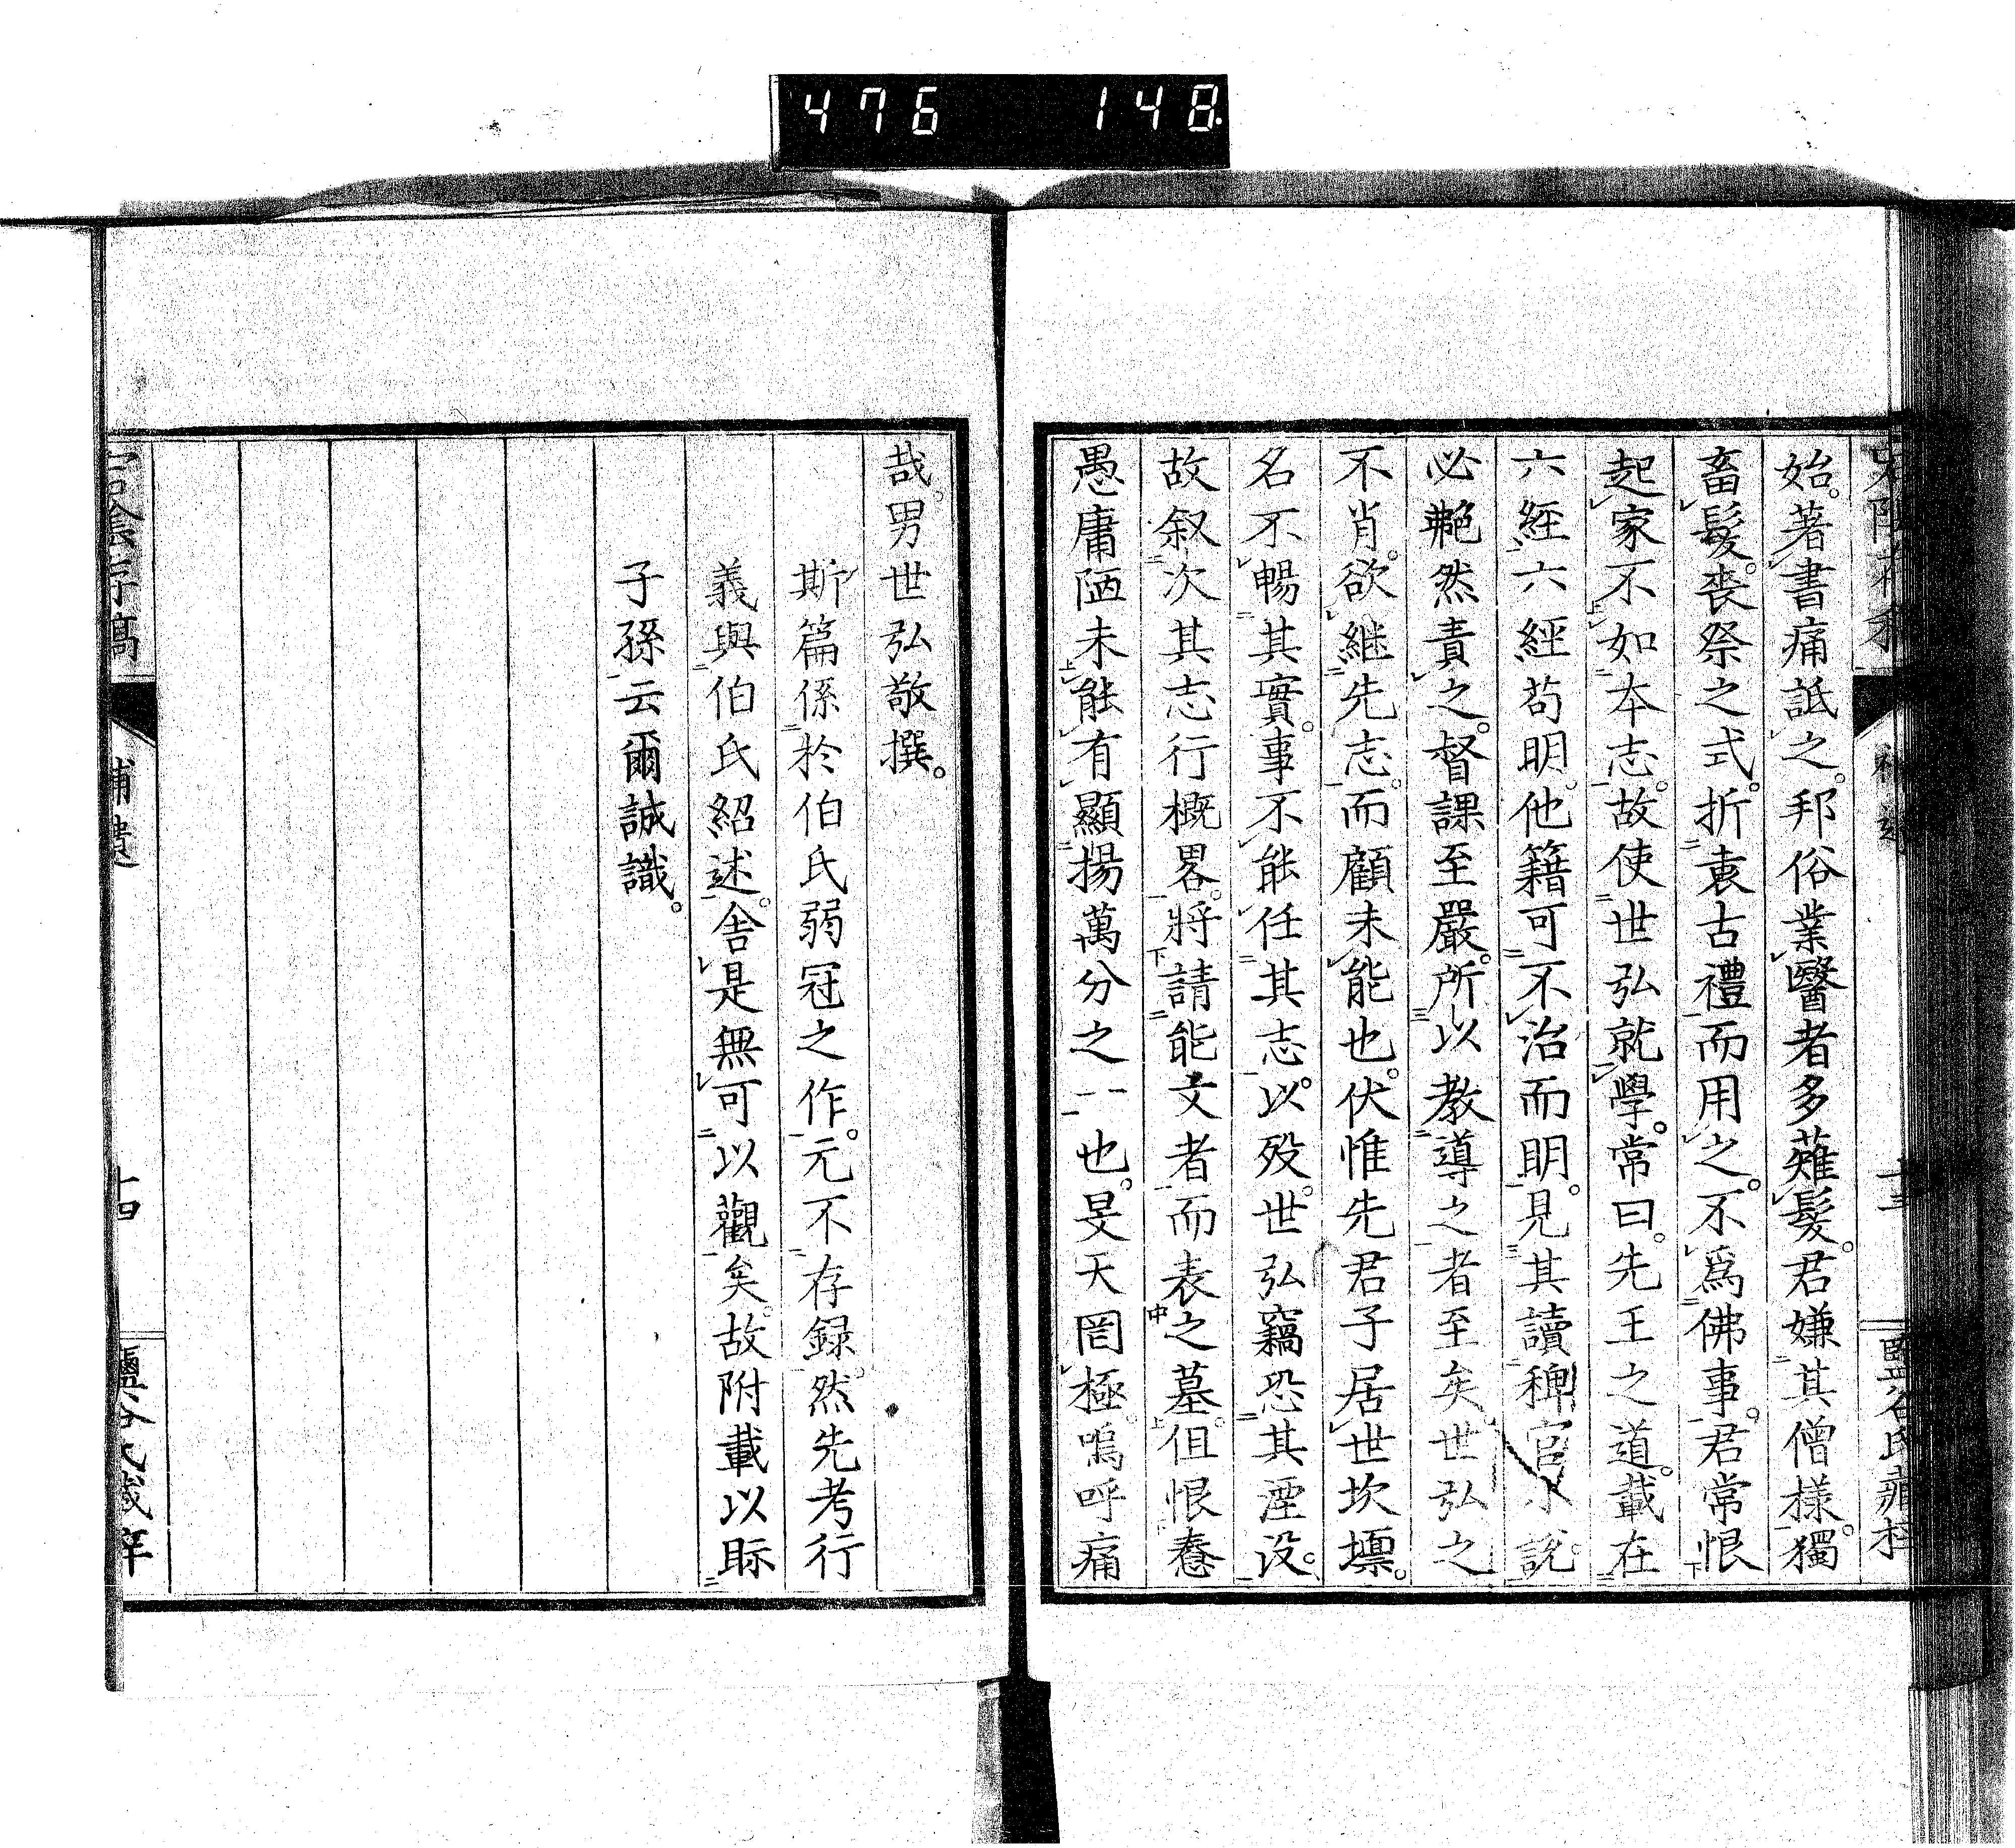 476 148.
始。著書痛詆之。邦俗業醫者多薙髮。君嫌其僧樣。獨
畜髮。喪祭之式。折衷古禮而用之。不爲佛事。君常恨
起家不如本志。故使世弘就學。常曰。先王之道。載在
六經六經苟明。他籍可不治而明。見其讀稗官小說。
必艴然責之。督課至嚴。所以教導之者至矣世弘之
不肖。欲継先志。而顧未能也。伏惟先君子居世坎壈。
名不暢其實。事不能任其志。以歿。世弘竊恐其湮没。
故叙次其志行概畧。將請能文者而表之墓。但恨惷
愚庸陋未能有顯揚萬分之一也。旻天罔極。嗚呼痛
哉。男世弘敬撰。
斯篇係於伯氏弱冠之作。元不存録。然先考行
義與伯氏紹述。舍是無可以觀矣。故附載以眎
子孫云爾誠識。
宕陰存稿 補遺 十四 鹽谷氏藏梓